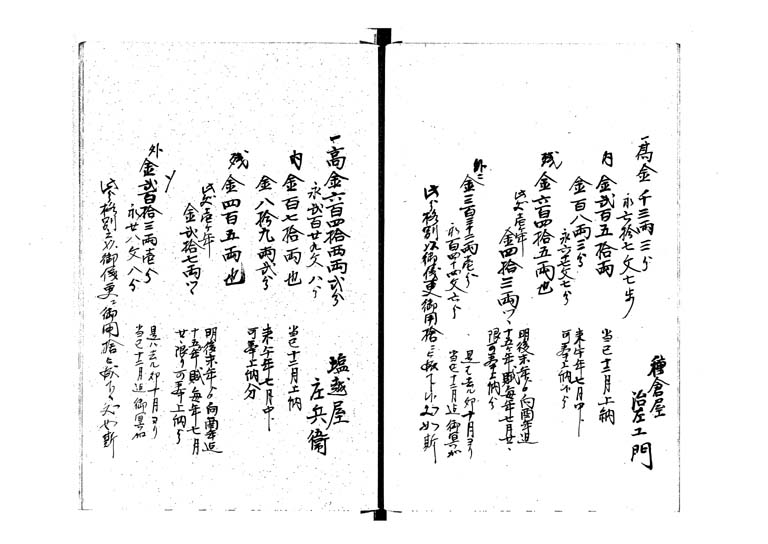 一高金千三両三分
永六拾七文七歩
種倉屋
治左エ門
内金弐百五拾両
当巳十二月上納
金百八両三分
永六文七分
来午年七月中
可奉上納分
残金六百四拾五両也
此処壱ケ年
金四拾三両ツヽ
明後未年ゟ向酉年迄
十五ケ年賦毎年七月廿
限り可奉上納分
外ニ金三百三十二両壱分
永百四十四文六分
是者去ル卯十月ヨリ
当巳十二月迄御冥加
此分格別以御儀更御用捨ニ被下候如斯
一高金六百四拾四両弐分
永弐百廿九文八分
塩越屋
庄兵衛
内金百七拾両也
当巳十二月上納
金八拾九両弐分
来午年七月中
可奉上納分
残金四百五両也
此処壱ケ年
金弐拾七両ツヽ
明後未年ゟ向酉年迄
十五ケ年賦毎年七月
廿限り可奉上納分
外金弐百拾三両壱分
永廿八文八分
是ハ去ル卯十月ヨリ
当巳十二月迄御冥加
此分格別之以御儀更ニ御用捨ニ被下候如斯